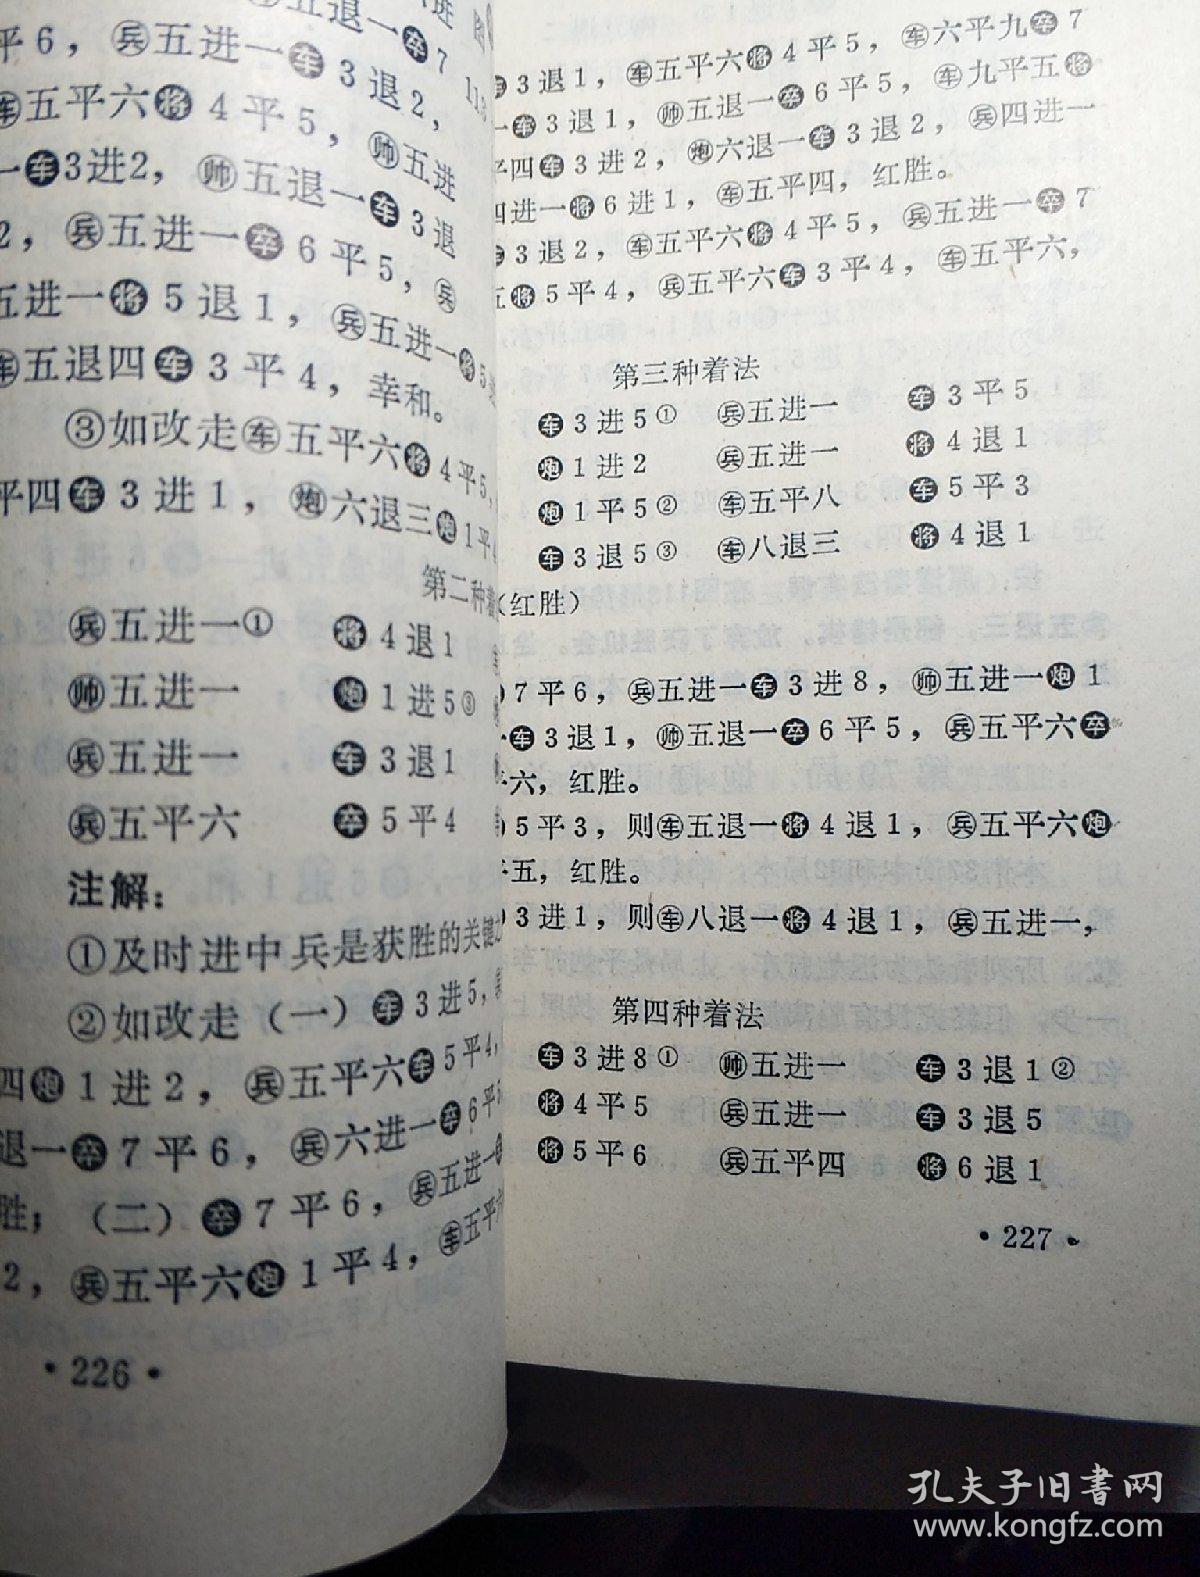 五退一卒7
平6，兵五进一车3退2，
车五平六将4平5，帅五进
一车3进2，帅五退一车3退
2，兵五进一卒6平5，兵
五进一将5退1，兵五进一将5
车五退四车3平4，幸和。
③如改走车五平六将4平5，
平四车3进1，炮六退三炮1平
第二种着
兵五进一① 将4退1
帅五进一 炮1进5③
兵五进一 车3退1
兵五平六 卒5平4
注解：
①及时进中兵是获胜的关键
②如改走（一）车3进5，
四炮1进2，兵五平六车5平4，
退一卒7平6，兵六进一卒6平
胜；（二）卒7平6，兵五进一
2，兵五平六炮1平4，车五平六
·226·
3退1，车五平六将4平5，车六平九卒7
车3退1，帅五退一卒6平5，车九平五将
平四车3进2，炮六退一车3退2，兵四进一
四进一将6进1，车五平四，红胜。
3退2，车五平六将4平5，兵五进一卒7
五将5平4，兵五平六车3平4，车五平六，
第三种着法
车3进5① 兵五进一 车3平5
炮1进2 兵五进一 将4退1
炮1平5② 车五平八 车5平3
车3退5③ 车八退三 将4退1
（红胜）
7平6，兵五进一车3进8，帅五进一炮1
车3退1，帅五退一卒6平5，兵五平六卒
六，红胜。
5平3，则车五退一将4退1，兵五平六炮
五，红胜。
3进1，则车八退一将4退1，兵五进一，
第四种着法
车3进8① 帅五进一 车3退1②
将4平5 兵五进一 车3退5
将5平6 兵五平四 将6退1
·227·
孔夫子旧书网
www.kongfz.com